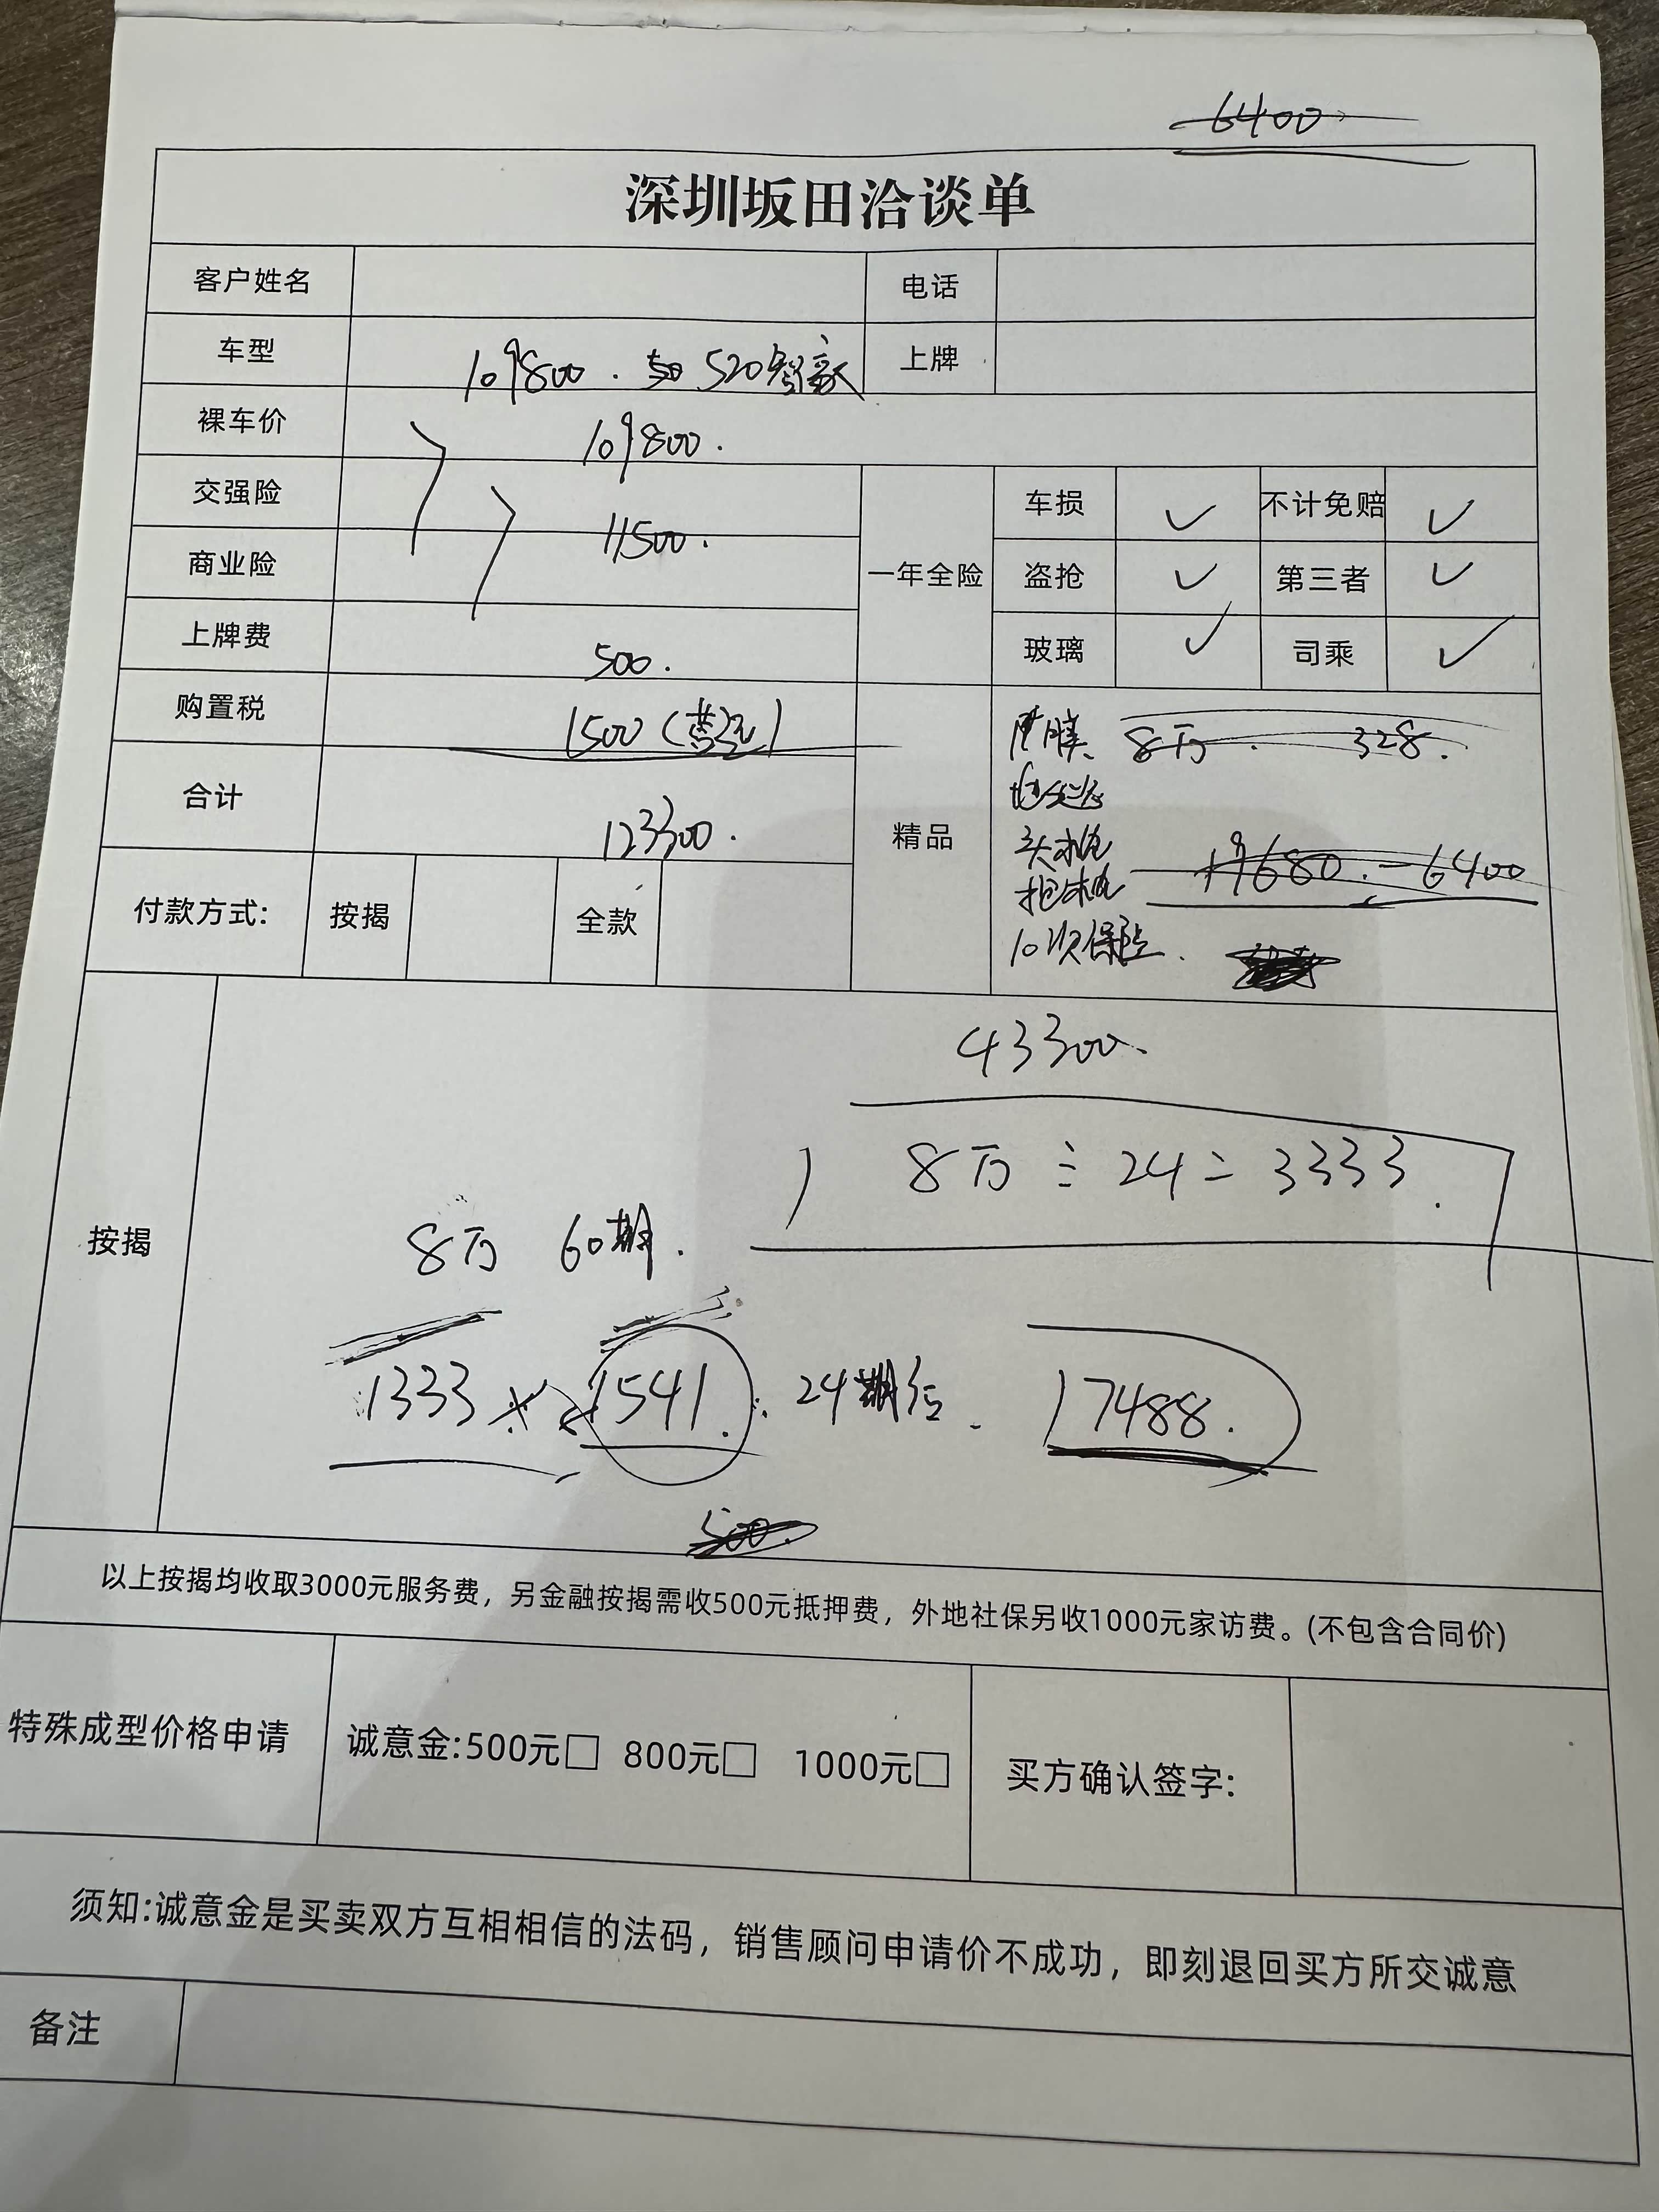 6400
深圳坂田洽谈单
客户姓名 电话
车型 109800. 520智豪 上牌
裸车价 109800.
交强险 11500. 一年全险 车损 ✓ 不计免赔 ✓
商业险 盗抢 ✓ 第三者 ✓
上牌费 500. 玻璃 ✓ 司乘 ✓
购置税 1500
合计 123300. 精品 膜 8万. 328.
19680. - 6400
10次保
付款方式: 按揭 全款
43300.
8万 ÷ 24 = 3333.
按揭
8万 60期.
1333 1541. 24期后 17488.
500.
以上按揭均收取3000元服务费，另金融按揭需收500元抵押费，外地社保另收1000元家访费。(不包含合同价)
特殊成型价格申请 诚意金:500元□ 800元□ 1000元□ 买方确认签字:
须知:诚意金是买卖双方互相相信的法码，销售顾问申请价不成功，即刻退回买方所交诚意
备注